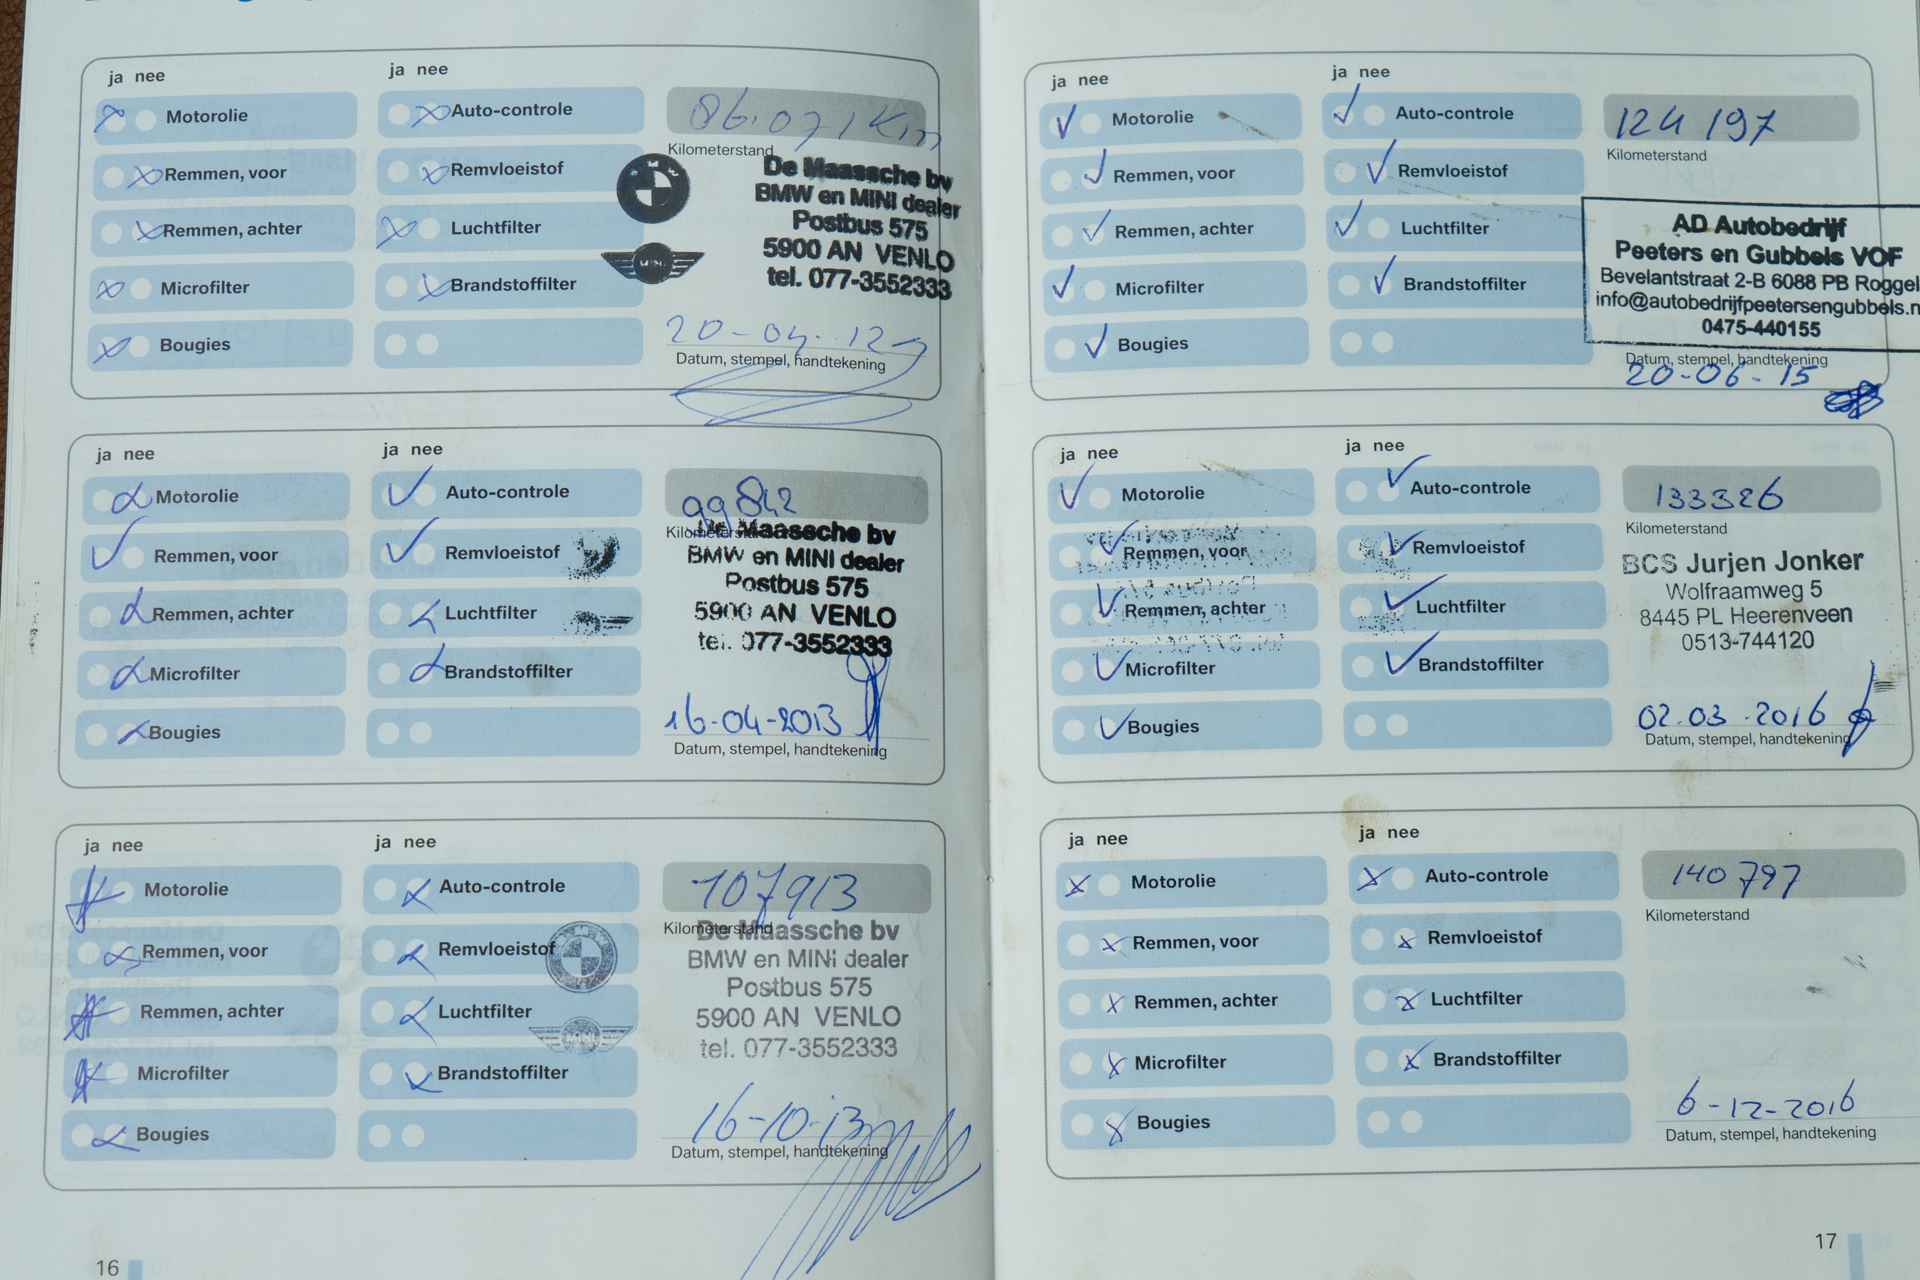 ja nee
ja nee
Motorolie
Auto-controle
86.071 Km
Kilometerstand
Remmen, voor
Remvloeistof
Remmen, achter
Luchtfilter
Microfilter
Brandstoffilter
Bougies
BMW
MINI
De Maassche bv
BMW en MINI dealer
Postbus 575
5900 AN VENLO
tel. 077-3552333
20-04-12
Datum, stempel, handtekening
ja nee
ja nee
Motorolie
Auto-controle
99842
Kilometerstand
Remmen, voor
Remvloeistof
Remmen, achter
Luchtfilter
Microfilter
Brandstoffilter
Bougies
De Maassche bv
BMW en MINI dealer
Postbus 575
5900 AN VENLO
tel. 077-3552333
16-04-2013
Datum, stempel, handtekening
ja nee
ja nee
Motorolie
Auto-controle
107913
Kilometerstand
Remmen, voor
Remvloeistof
Remmen, achter
Luchtfilter
Microfilter
Brandstoffilter
Bougies
MINI
De Maassche bv
BMW en MINI dealer
Postbus 575
5900 AN VENLO
tel. 077-3552333
16-10-13
Datum, stempel, handtekening
16
ja nee
ja nee
Motorolie
Auto-controle
124197
Kilometerstand
Remmen, voor
Remvloeistof
Remmen, achter
Luchtfilter
Microfilter
Brandstoffilter
Bougies
AD Autobedrijf
Peeters en Gubbels VOF
Bevelantstraat 2-B 6088 PB Roggel
info@autobedrijfpeetersengubbels.n
0475-440155
Datum, stempel, handtekening
20-06-15
ja nee
ja nee
Motorolie
Auto-controle
133326
Kilometerstand
Remmen, voor
Remvloeistof
Remmen, achter
Luchtfilter
Microfilter
Brandstoffilter
Bougies
BCS Jurjen Jonker
Wolfraamweg 5
8445 PL Heerenveen
0513-744120
02.03.2016
Datum, stempel, handtekening
ja nee
ja nee
Motorolie
Auto-controle
140797
Kilometerstand
Remmen, voor
Remvloeistof
Remmen, achter
Luchtfilter
Microfilter
Brandstoffilter
Bougies
6-12-2016
Datum, stempel, handtekening
17